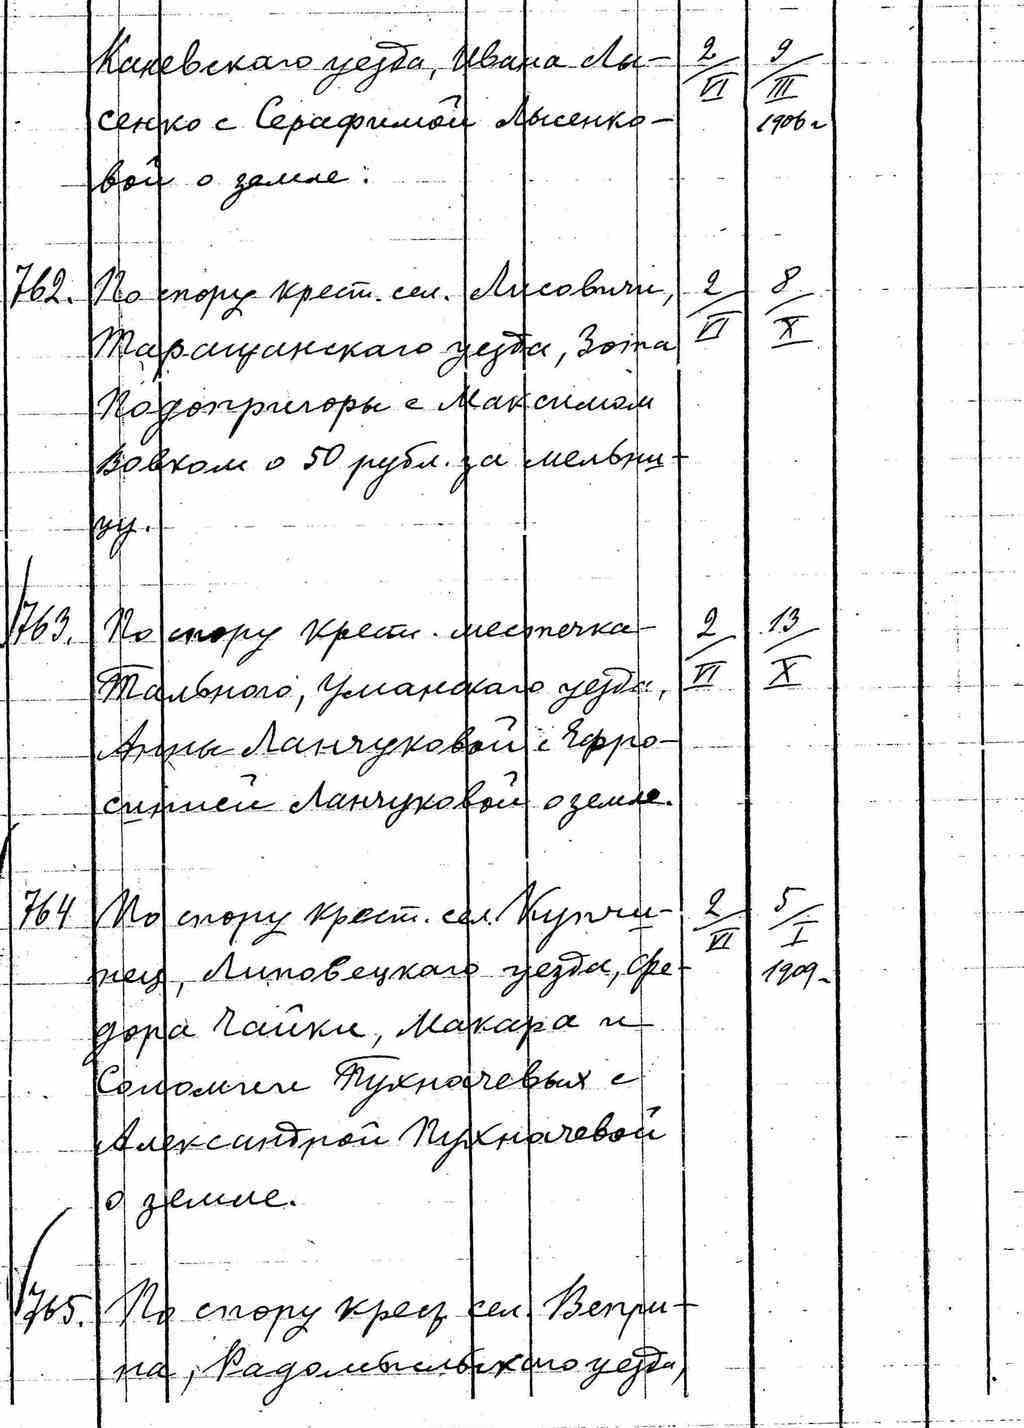 Каневскаго уезда, Ивана Лы- 2/VI 9/III
сенко с Серафимой Лысенко- 1906 г
вой о земле.
762. По спору крест. сел. Лисовичи, 2/VI 8/X
Таращанскаго уезда, Зота
Подопригоры с Максимом
Вовком о 50 рубл. за мельни-
цу.
763. По спору крест. местечка 2/VI 13/X
Тального, Уманскаго уезда,
Анны Ланчуковой с Ефро-
синией Ланчуковой о земле.
764 По спору крест. сел. Купчи- 2/VI 5/I
нец, Липовецкаго уезда, Фе- 1909 г
дора Чайки, Макара и
Соломии Пухначевых с
Александрой Пухначевой
о земле.
765. По спору крест. сел. Вепри-
на, Радомысльскаго уезда,